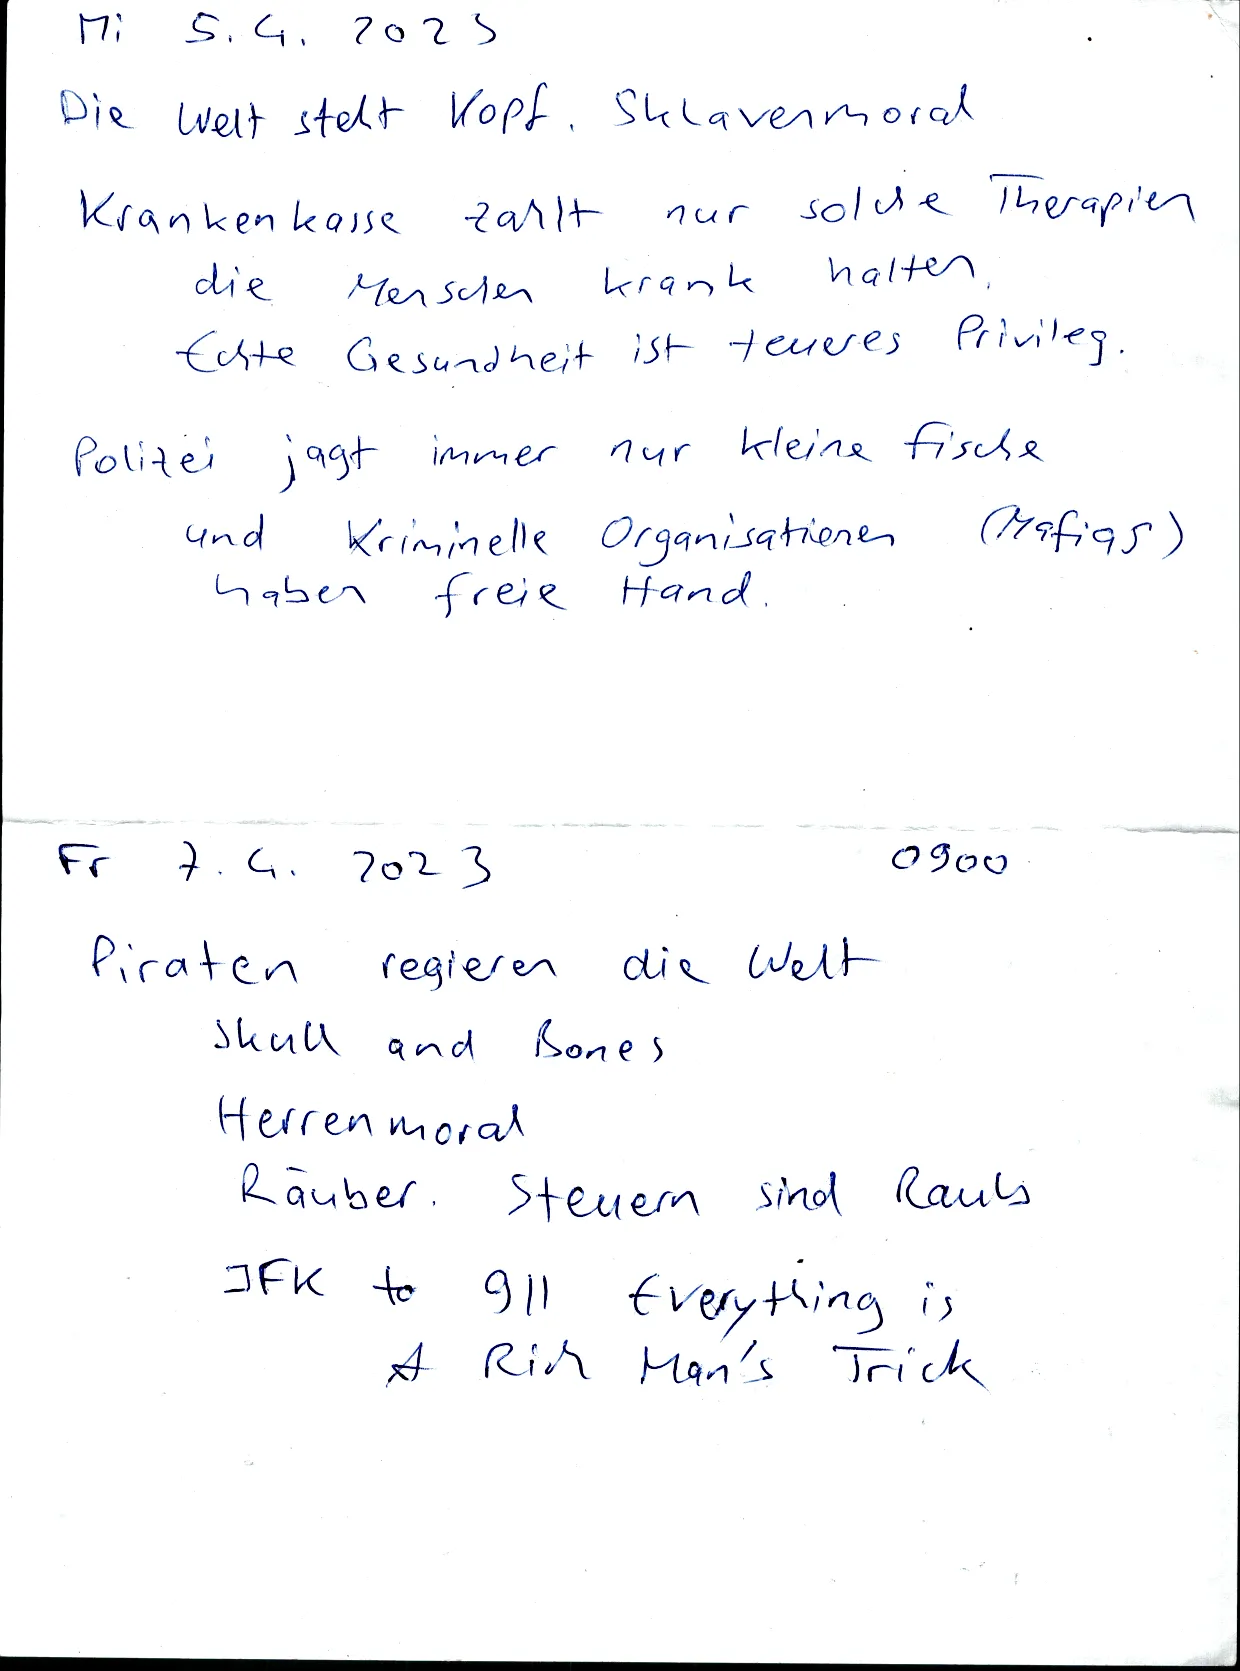 Mi 5.4. 2023
Die Welt steht Kopf. Sklavenmoral
Krankenkasse zahlt nur solche Therapien
die Menschen krank halten.
Echte Gesundheit ist teueres Privileg.
Polizei jagt immer nur kleine Fische
und Kriminelle Organisationen (Mafias)
haben freie Hand.
Fr 7.4. 2023 0900
Piraten regieren die Welt
Skull and Bones
Herrenmoral
Räuber. Steuern sind Raub
JFK to 911 Everything is
A Rich Man's Trick